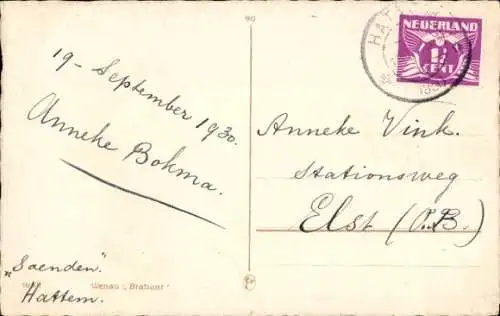 90
19 - September 1930.
Anneke Bokma.
"Saenden".
Hattem.
Wenau „Brabant"
NEDERLAND
1½
CENT
HAT
Anneke Vink.
Stationsweg
Elst (O.B.)